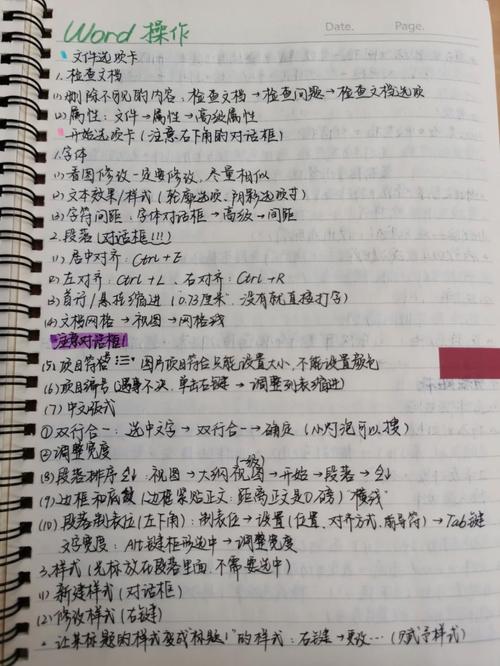 Word 操作
Date.
Page.
文件选项卡
1.检查文档
(1)删除不可见的内容：检查文档→检查问题→检查文档选项
(2)属性：文件→属性→高级属性
开始选项卡（注意右下角的对话框）
1.字体
(1)看图修改一定要修改，尽量相似
(2)文本效果/样式（轮廓选项、阴影选项等）
(3)字符间距：字体对话框→高级→间距
2.段落（对话框!!!）
(1)居中对齐：Ctrl+E
(2)左对齐：Ctrl+L、右对齐：Ctrl+R
(3)首行/悬挂缩进（"0.73厘米"，没有就直接打字）
(4)文档网格→视图→网格线
注意对话框！
(5)项目符号 图片项目符号只能设置大小，不能设置颜色
(6)项目编号（遇事不决，单击右键→调整列表缩进）
(7)中文版式
①双行合一：选中文字→双行合一→确定（小灯泡可以搜）
②调整宽度
(8)段落排序：视图→大纲视图（一级）→开始→段落→
(9)边框和底纹（边框紧贴正文：距离正文是0磅）"横线"
(10)段落制表位（左下角）：制表位→设置（位置、对齐方式、前导符）→Tab键
文字宽度：Alt键框形选中→调整宽度
3.样式（光标放在段落里面，不需要选中）
(1)新建样式（对话框）
(2)修改样式（右键）
让某标题的样式变成"标题1"的样式：右键→更改…（赋予样式）